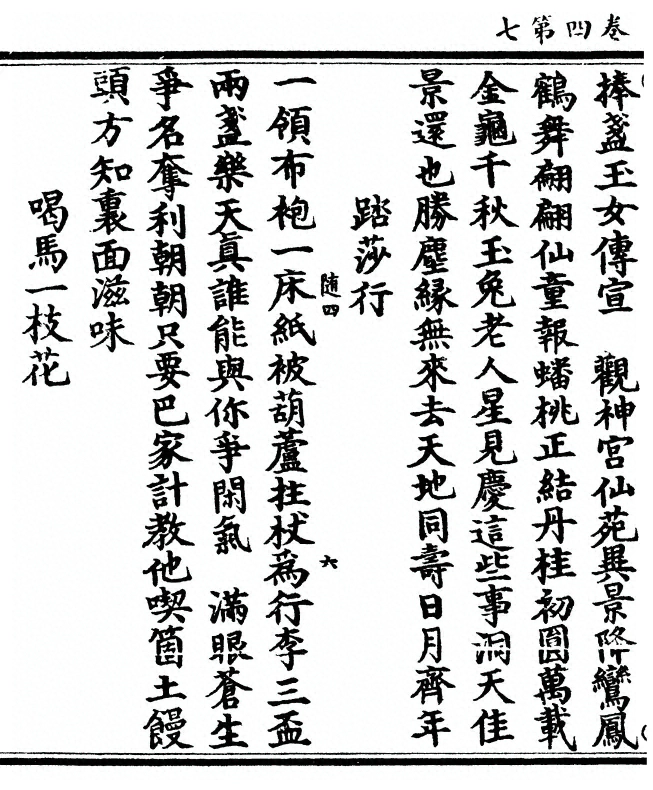 卷四第七
捧盞玉女傳宣　觀神宮仙苑異景降鸞鳳
鶴舞翩翩仙童報蟠桃正結丹桂初圓萬載
金龜千秋玉兔老人星見慶這些事洞天佳
景還也勝塵緣無來去天地同壽日月齊年
踏莎行
隨四
六
一領布袍一床紙被葫蘆拄杖為行李三盃
兩盞樂天真誰能與你爭閑氣　滿眼蒼生
爭名奪利朝朝只要巴家計教他喫箇土饅
頭方知裏面滋味
喝馬一枝花